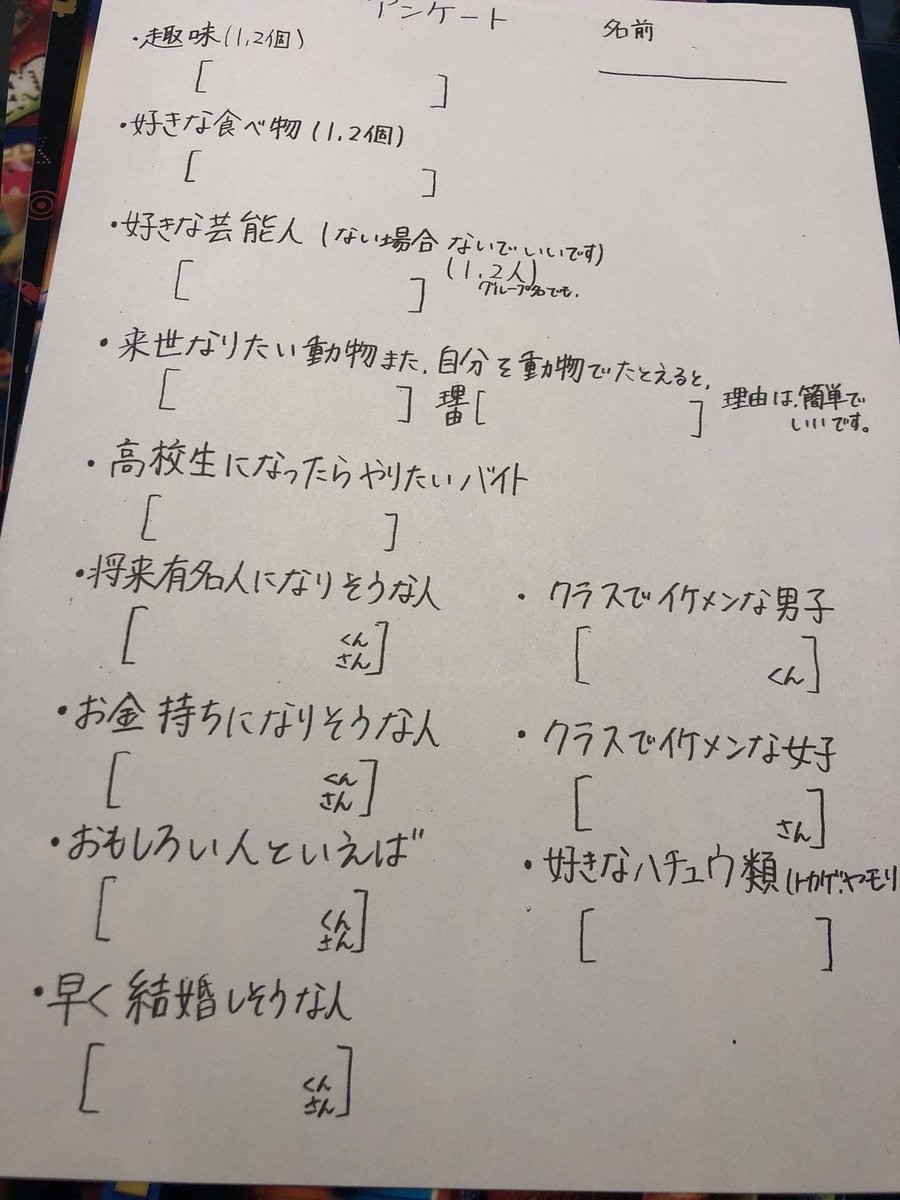 アンケート
名前
・趣味(1,2個)
[ ]
・好きな食べ物(1,2個)
[ ]
・好きな芸能人(ない場合ないでいいです)
(1,2人)
グループ名でも.
[ ]
・来世なりたい動物また,自分を動物でたとえると,
[ ] 理由[ ] 理由は,簡単で
いいです。
・高校生になったらやりたいバイト
[ ]
・将来有名人になりそうな人
[ くん
さん]
・お金持ちになりそうな人
[ くん
さん]
・おもしろい人といえば
[ くん
さん]
・早く結婚しそうな人
[ くん
さん]
・クラスでイケメンな男子
[ くん]
・クラスでイケメンな女子
[ さん]
・好きなハチュウ類(トカゲ,ヤモリ
[ ]